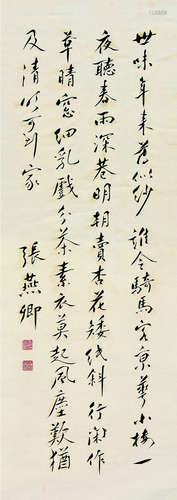 世味年來薄似紗誰令騎馬客京華小樓一
夜聽春雨深巷明朝賣杏花矮紙斜行閑作
草晴窗細乳戲分茶素衣莫起風塵歎猶
及清明可到家
張燕卿